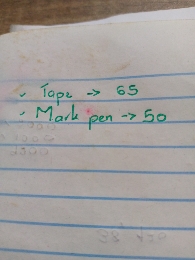 ✓ Tape → 65
✓ Mark pen → 50